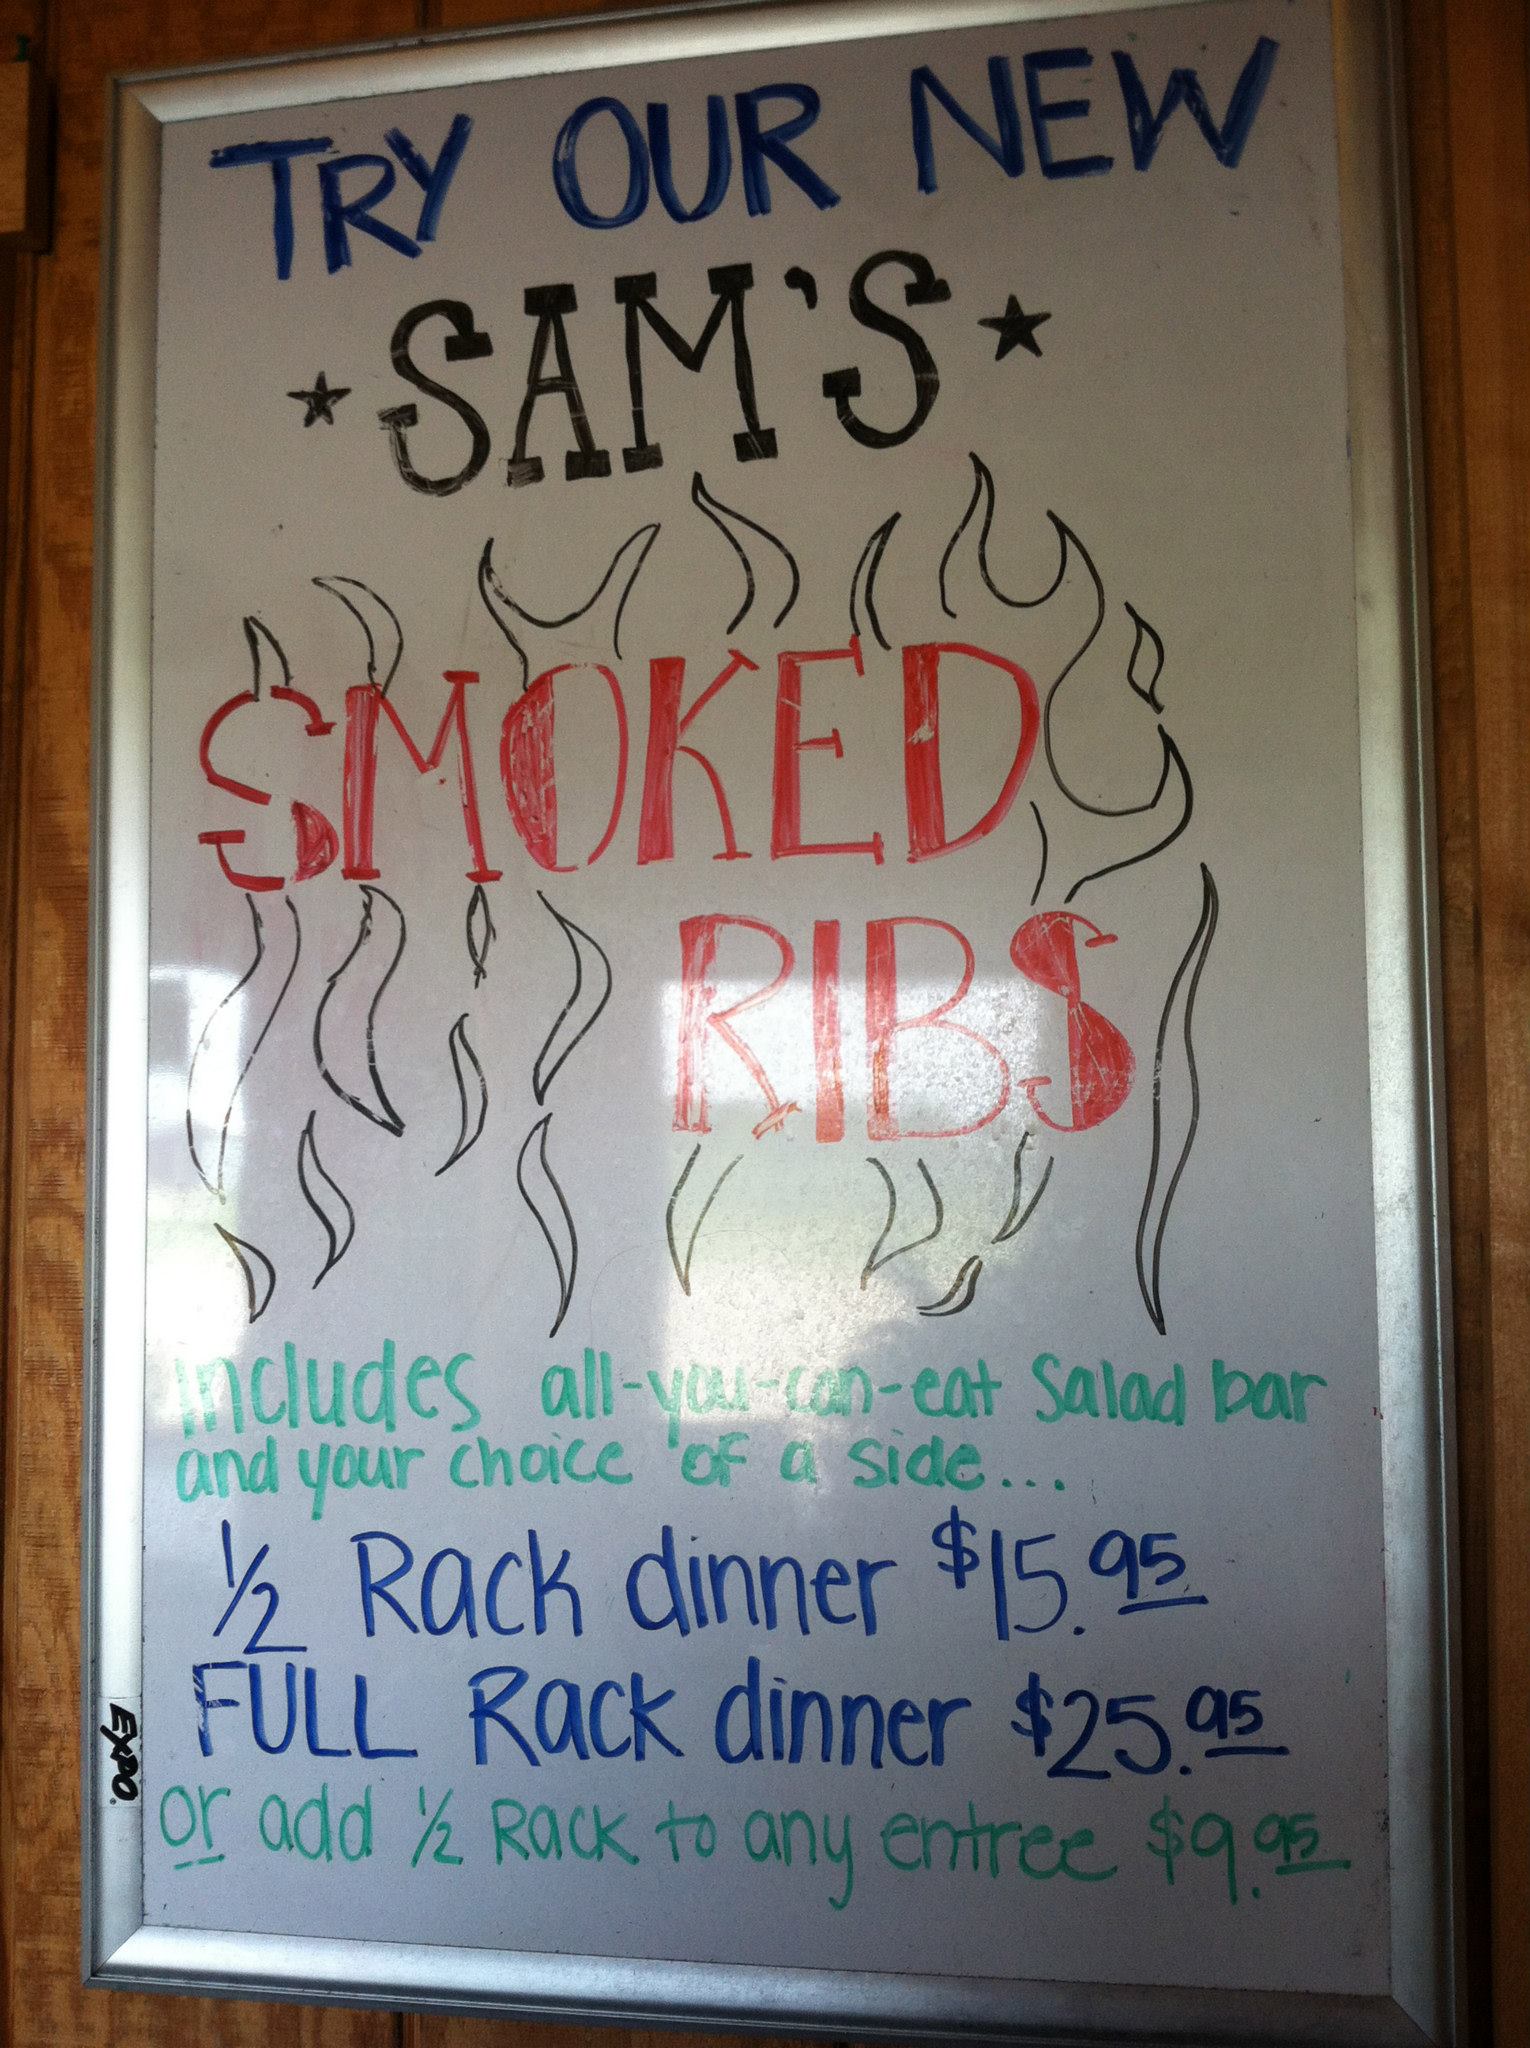 TRY OUR NEW
SAM'S
SMOKED
RIBS
includes all-you-can-eat salad bar
and your choice of a side...
1/2 Rack dinner $15.95
FULL Rack dinner $25.95
or add 1/2 Rack to any entree $9.95
EXPO